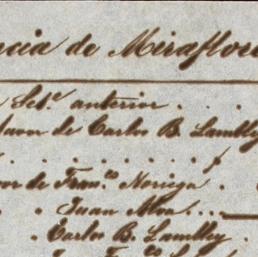 ncia de Miraflore
Set.e anterior . . .
favor de Carlos B. Lambley
. . . . . . . .
vor de Fran.co Noriega .
" . Juan Alva . . .
" . Carlos B. Lambley .